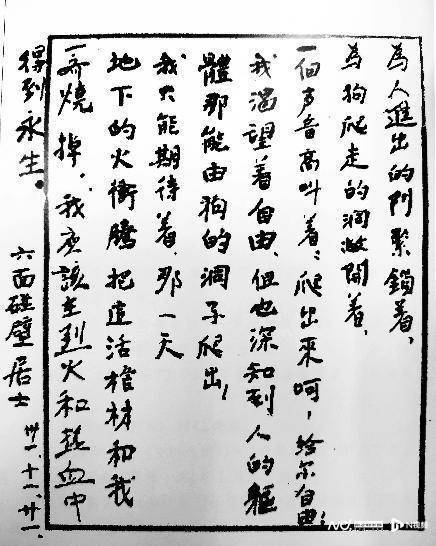 為人進出的門緊鎖着、
為狗爬走的洞敞開着、
一個声音高叫着：爬出來呵，給尔自由！
我渴望着自由、但也深知到人的軀
體那能由狗的洞子爬出！
我只能期待着、那一天
地下的火衝騰把這活棺材和我
一齊燒掉、我應該在烈火和熱血中
得到永生。
六面碰壁居士 卅一、十一、廿一、
N视频